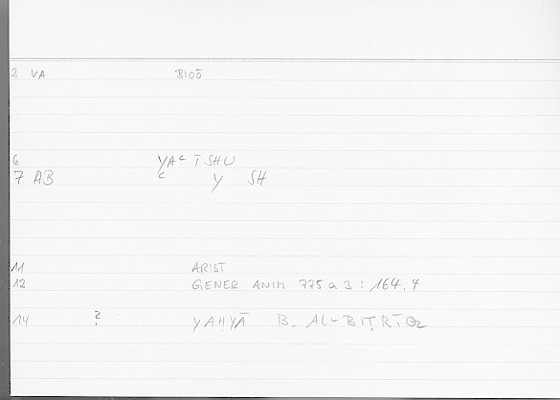 2 VA BIOŌ
6 YAʿĪSHU
7 AB ʿ Y SH
11 ARIST
12 GENER ANIM 775 a 3 : 164.4
14 ? YAḤYĀ B. AL-BIṬRĪQ